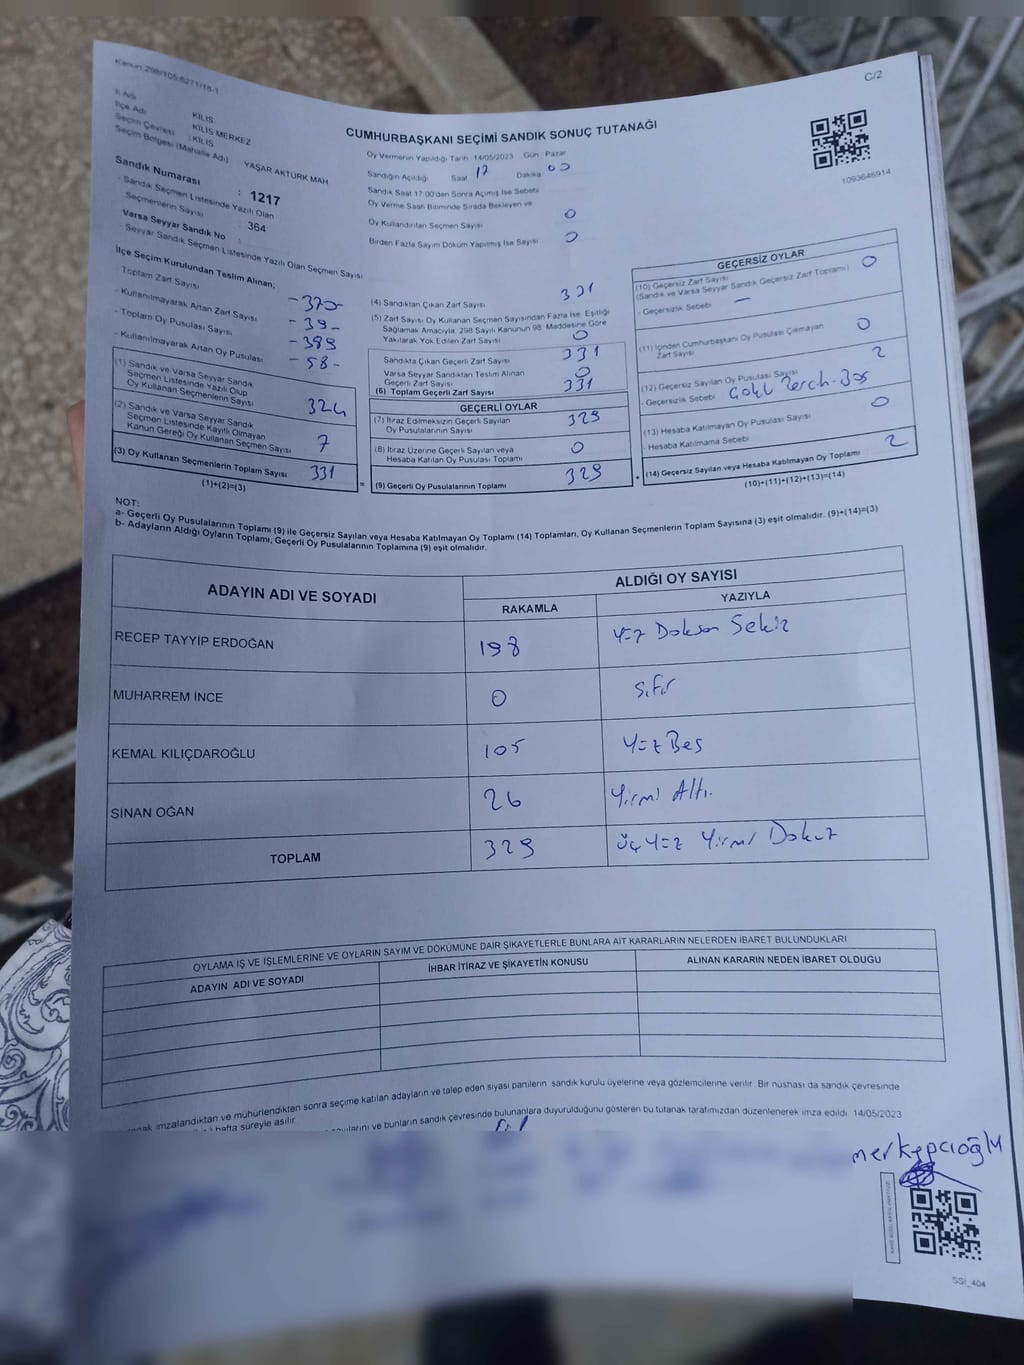 Kanun:298/105,6271/18-1
C/2
CUMHURBAŞKANI SEÇİMİ SANDIK SONUÇ TUTANAĞI
İl Adı : KİLİS
İlçe Adı : KİLİS MERKEZ
Seçim Çevresi : KİLİS
Seçim Bölgesi (Mahalle Adı) YAŞAR AKTÜRK MAH
Sandık Numarası : 1217
- Sandık Seçmen Listesinde Yazılı Olan
Seçmenlerin Sayısı : 364
Varsa Seyyar Sandık No :
- Seyyar Sandık Seçmen Listesinde Yazılı Olan Seçmen Sayısı
Oy Vermenin Yapıldığı Tarih :14/05/2023 Gün : Pazar
Sandığın Açıldığı Saat 17 Dakika 00
Sandık Saat 17:00'den Sonra Açılmış İse Sebebi
Oy Verme Saati Bitiminde Sırada Bekleyen ve
Oy Kullandırılan Seçmen Sayısı 0
Birden Fazla Sayım Döküm Yapılmış İse Sayısı 0
1093646914
İlçe Seçim Kurulundan Teslim Alınan;
- Toplam Zarf Sayısı - 370 -
- Kullanılmayarak Artan Zarf Sayısı - 39 -
- Toplam Oy Pusulası Sayısı - 389
- Kullanılmayarak Artan Oy Pusulası - 58 -
(1) Sandık ve Varsa Seyyar Sandık
Seçmen Listesinde Yazılı Olup
Oy Kullanan Seçmenlerin Sayısı 324
(2) Sandık ve Varsa Seyyar Sandık
Seçmen Listesinde Kayıtlı Olmayan
Kanun Gereği Oy Kullanan Seçmen Sayısı 7
(3) Oy Kullanan Seçmenlerin Toplam Sayısı 331
(1)+(2)=(3)
(4) Sandıktan Çıkan Zarf Sayısı 331
(5) Zarf Sayısı Oy Kullanan Seçmen Sayısından Fazla İse, Eşitliği
Sağlamak Amacıyla, 298 Sayılı Kanunun 98. Maddesine Göre
Yakılarak Yok Edilen Zarf Sayısı 0
Sandıkta Çıkan Geçerli Zarf Sayısı 331
Varsa Seyyar Sandıktan Teslim Alınan
Geçerli Zarf Sayısı 0
(6) Toplam Geçerli Zarf Sayısı 331
GEÇERLİ OYLAR
(7) İtiraz Edilmeksizin Geçerli Sayılan
Oy Pusulalarının Sayısı 329
(8) İtiraz Üzerine Geçerli Sayılan veya
Hesaba Katılan Oy Pusulası Toplamı 0
(9) Geçerli Oy Pusulalarının Toplamı 329
GEÇERSİZ OYLAR
(10) Geçersiz Zarf Sayısı
(Sandık ve Varsa Seyyar Sandık Geçersiz Zarf Toplamı) 0
- Geçersizlik Sebebi —
(11) İçinden Cumhurbaşkanı Oy Pusulası Çıkmayan
Zarf Sayısı 0
(12) Geçersiz Sayılan Oy Pusulası Sayısı 2
- Geçersizlik Sebebi
(13) Hesaba Katılmayan Oy Pusulası Sayısı 0
- Hesaba Katılmama Sebebi
(14) Geçersiz Sayılan veya Hesaba Katılmayan Oy Toplamı 2
(10)+(11)+(12)+(13)=(14)
NOT:
a- Geçerli Oy Pusulalarının Toplamı (9) ile Geçersiz Sayılan veya Hesaba Katılmayan Oy Toplamı (14) Toplamları, Oy Kullanan Seçmenlerin Toplam Sayısına (3) eşit olmalıdır. (9)+(14)=(3)
b- Adayların Aldığı Oyların Toplamı, Geçerli Oy Pusulalarının Toplamına (9) eşit olmalıdır.
ADAYIN ADI VE SOYADI
ALDIĞI OY SAYISI
RAKAMLA YAZIYLA
RECEP TAYYİP ERDOĞAN 198 Yüz Doksan Sekiz
MUHARREM İNCE 0 Sıfır
KEMAL KILIÇDAROĞLU 105 Yüz Beş
SİNAN OĞAN 26 Yirmi Altı.
TOPLAM 329 Üç Yüz Yirmi Dokuz
OYLAMA İŞ VE İŞLEMLERİNE VE OYLARIN SAYIM VE DÖKÜMÜNE DAİR ŞİKAYETLERLE BUNLARA AİT KARARLARIN NELERDEN İBARET BULUNDUKLARI
ADAYIN ADI VE SOYADI İHBAR İTİRAZ VE ŞİKAYETİN KONUSU ALINAN KARARIN NEDEN İBARET OLDUĞU
imzalandıktan ve mühürlendikten sonra seçime katılan adayların ve talep eden siyasi partilerin sandık kurulu üyelerine veya gözlemcilerine verilir. Bir nüshası da sandık çevresinde
hafta süreyle asılır.
ve bunların sandık çevresinde bulunanlara duyurulduğunu gösteren bu tutanak tarafımızdan düzenlenerek imza edildi. 14/05/2023
SSI_404